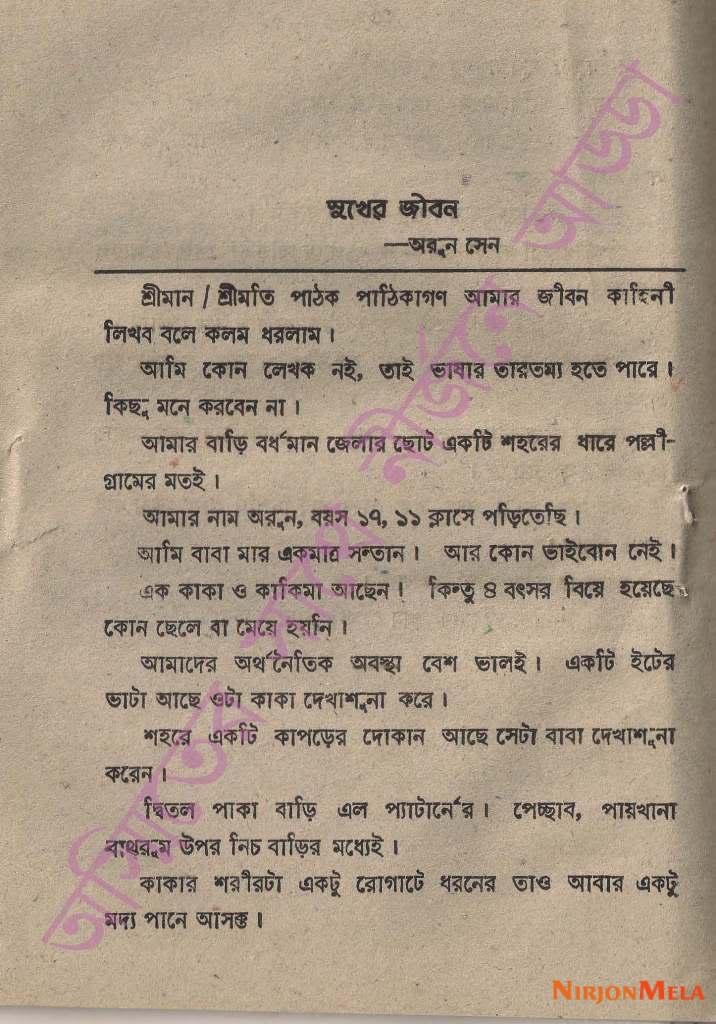 সুখের জীবন
—অরুন সেন
শ্রীমান / শ্রীমতি পাঠক পাঠিকাগণ আমার জীবন কাহিনী
লিখব বলে কলম ধরলাম।
আমি কোন লেখক নই, তাই ভাষার তারতম্য হতে পারে।
কিছু মনে করবেন না।
আমার বাড়ি বর্ধমান জেলার ছোট একটি শহরের ধারে পল্লী-
গ্রামের মতই।
আমার নাম অরুন, বয়স ১৭, ১১ ক্লাসে পড়িতেছি।
আমি বাবা মার একমাত্র সন্তান। আর কোন ভাইবোন নেই।
এক কাকা ও কাকিমা আছেন। কিন্তু ৪ বৎসর বিয়ে হয়েছে
কোন ছেলে বা মেয়ে হয়নি।
আমাদের অর্থনৈতিক অবস্থা বেশ ভালই। একটি ইটের
ভাটা আছে ওটা কাকা দেখাশুনা করে।
শহরে একটি কাপড়ের দোকান আছে সেটা বাবা দেখাশুনা
করেন।
দ্বিতল পাকা বাড়ি এল প্যাটার্নের। পেচ্ছাব, পায়খানা
বাথরুম উপর নিচ বাড়ির মধ্যেই।
কাকার শরীরটা একটু রোগাটে ধরনের তাও আবার একটু
মদ্য পানে আসক্ত।
অসিমাতেম সাথে নির্জনে আড্ডা
NIRJONMELA